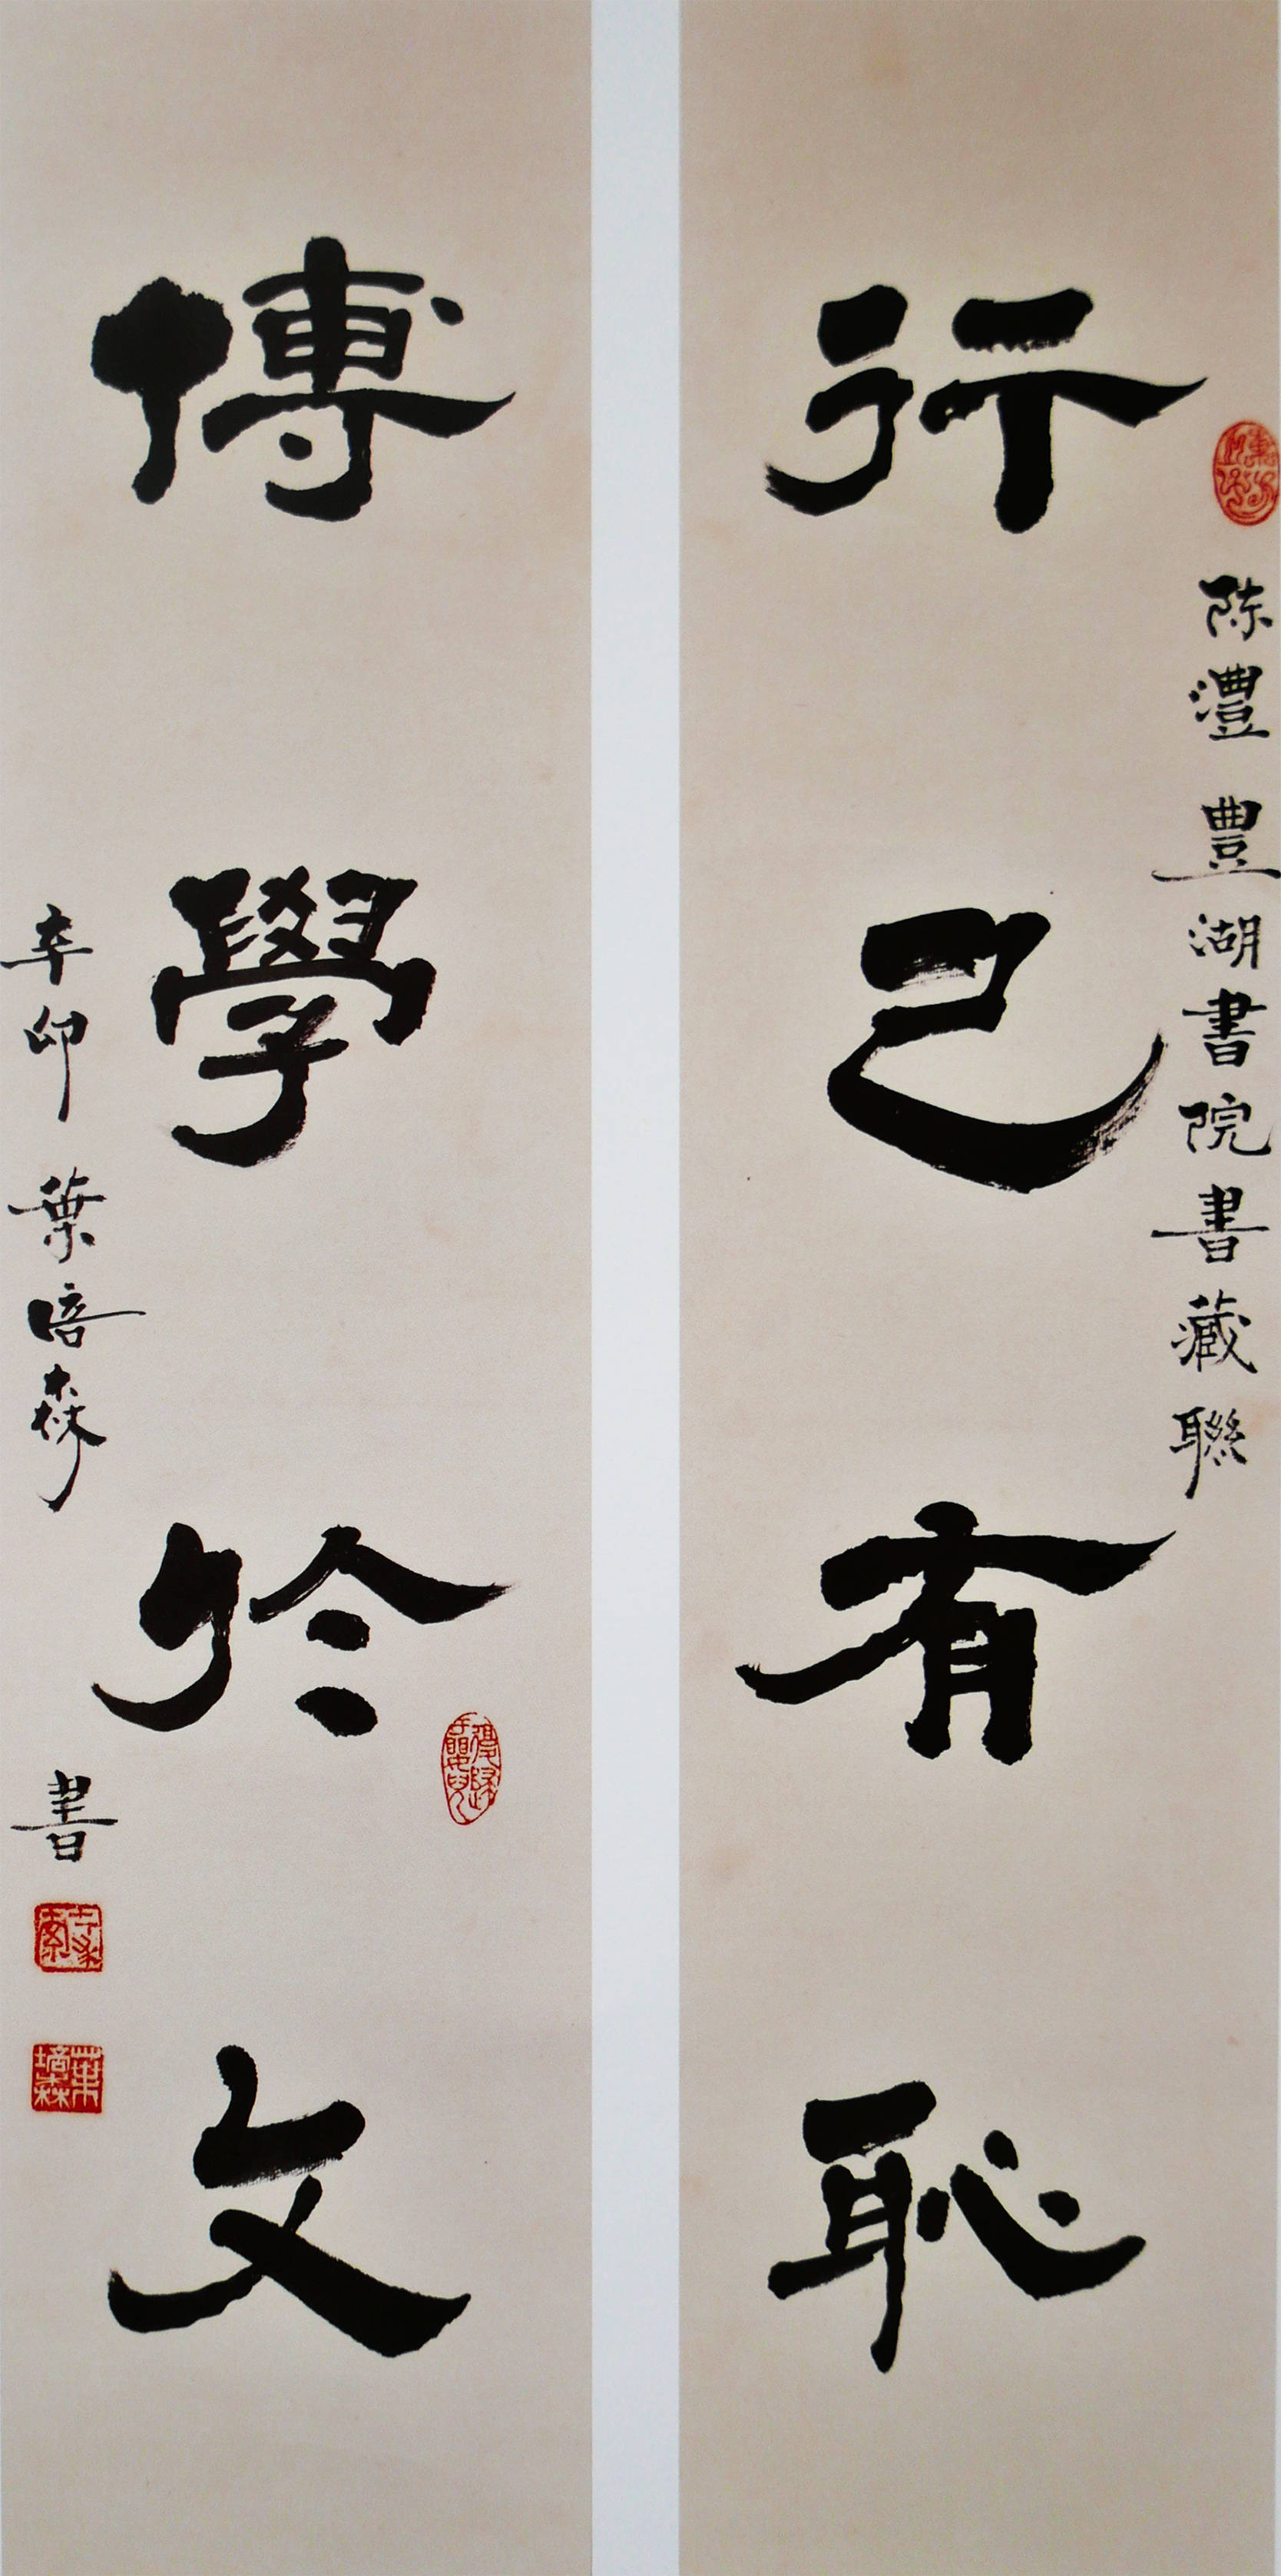 行己有恥
陈澧 豊湖書院書藏聯
博學於文
辛卯 葉培森 書
葉培森